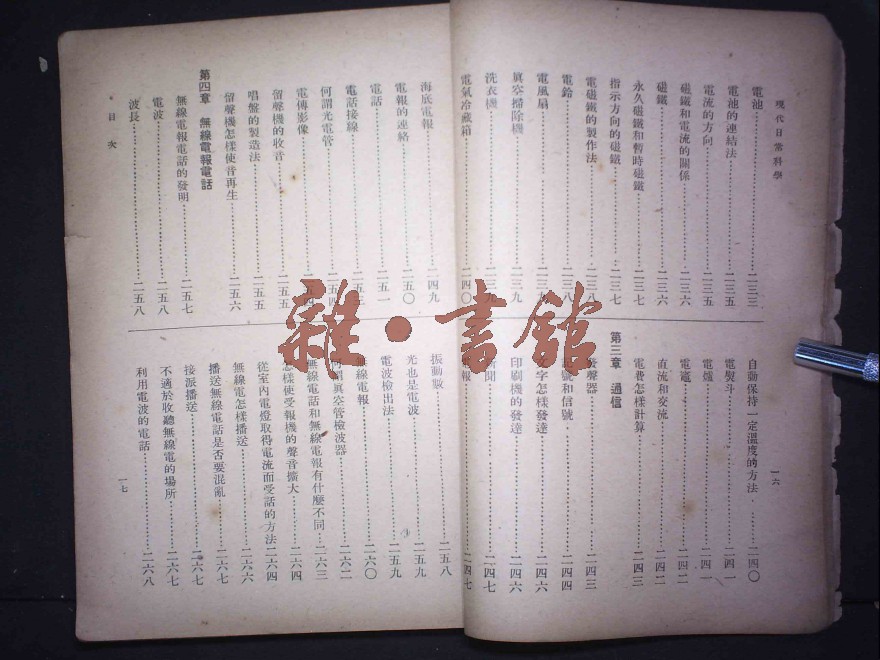 現代日常科學
電池……二三三
電池的連結法……二三五
電流的方向……二三五
磁鐵和電流的關係……二三六
磁鐵……二三六
永久磁鐵和暫時磁鐵……二三七
指示方向的磁鐵……二三七
電磁鐵的製作法……二三八
電鈴……二三八
電風扇……二三九
眞空掃除機……二三九
洗衣機……二三九
電氣冷藏箱……二四〇
自動保持一定溫度的方法……二四〇
電熨斗……二四一
電爐……二四一
電竈……二四二
直流和交流……二四二
電費怎樣計算……二四三
第三章 通信
發聲器……二四三
號和信號……二四四
字怎樣發達……二四六
印刷機的發達……二四六
新聞……二四七
電報……二四七
一六
海底電報……二四九
電報的連絡……二五〇
電話……二五一
電話接線……二五
何謂光電管……二五四
電傳影像……二五
留聲機的收音……二五五
唱盤的製造法……二五五
留聲機怎樣使音再生……二五六
第四章 無線電報電話
無線電報電話的發明……二五七
電波……二五八
波長……二五八
振動數……二五八
光也是電波……二五九
電波檢出法……二五九
無線電報……二六〇
何謂眞空管檢波器……二六二
無線電話和無線電報有什麼不同……二六三
怎樣使受報機的聲音擴大……二六四
從室內電燈取得電流而受話的方法……二六四
無線電怎樣播送……二六六
播送無線電話是否要混亂……二六七
接派播送……二六七
不適於收聽無線電的場所……二六七
利用電波的電話……二六八
目次
一七
雜·書館